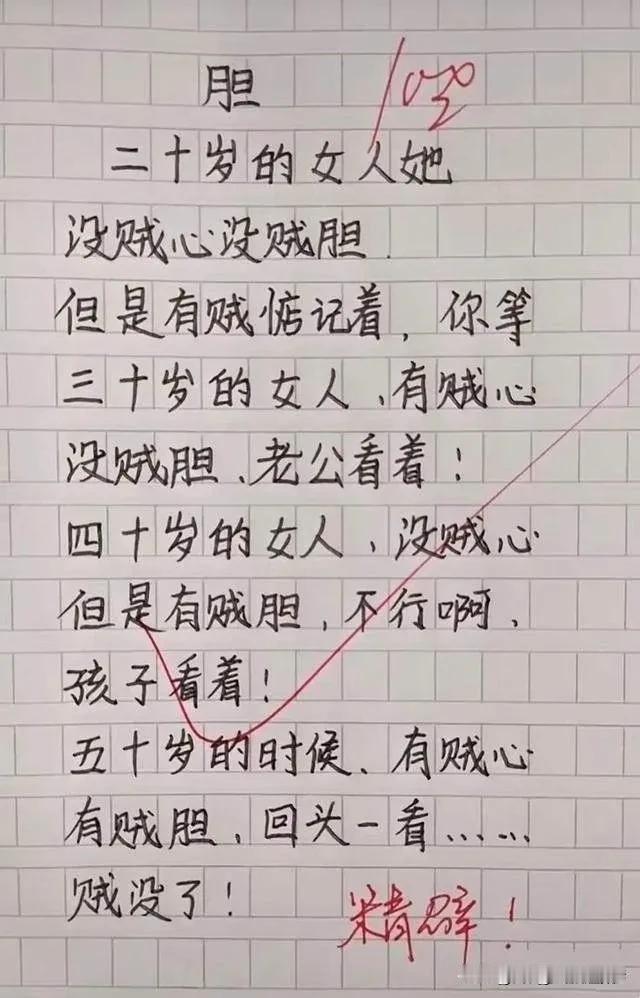 胆
100
二十岁的女人她
没贼心没贼胆.
但是有贼惦记着,你等
三十岁的女人、有贼心
没贼胆、老公看着!
四十岁的女人、没贼心
但是有贼胆,不行啊,
孩子看着!
五十岁的时候、有贼心
有贼胆,回头一看……
贼没了!
精辟!